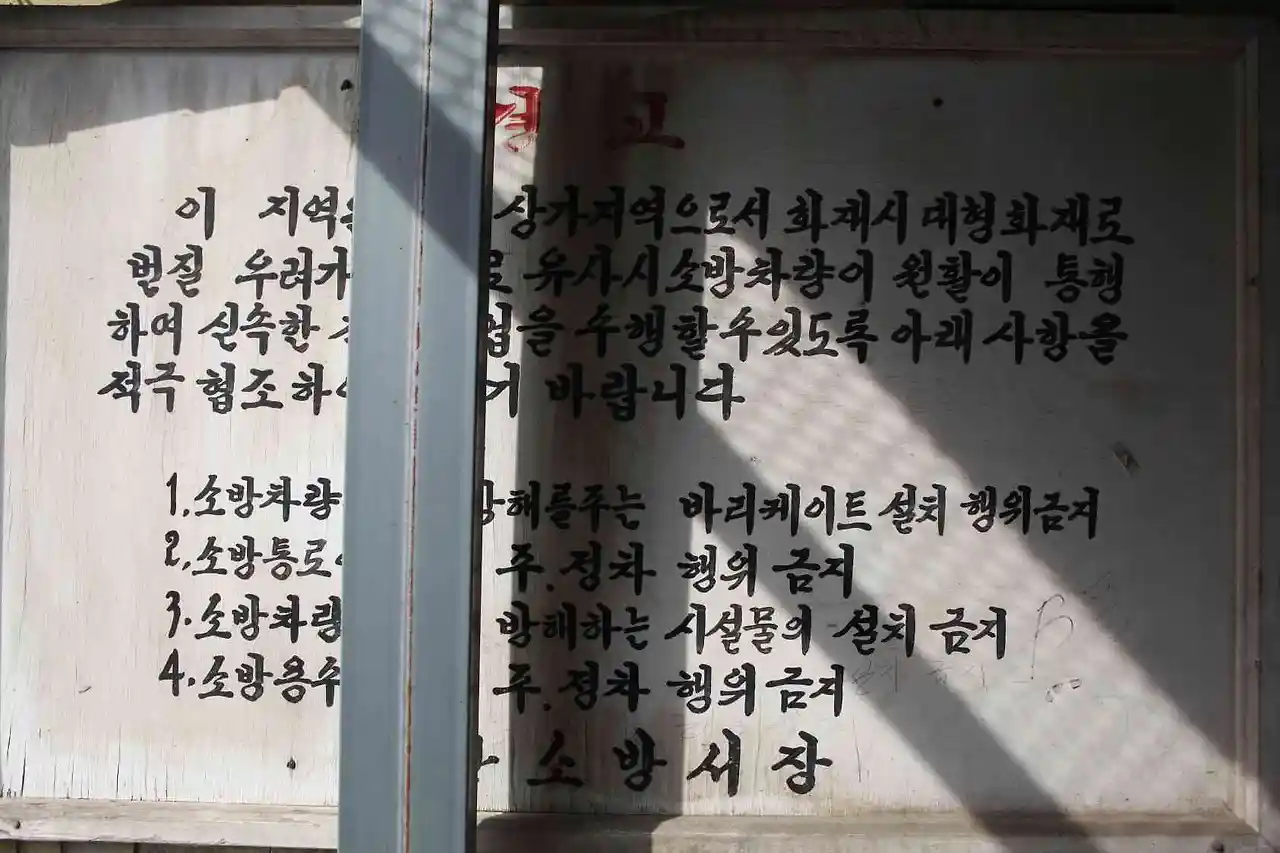 경 고
이 지역은 상가지역으로서 화재시 대형화재로
번질 우려가 로 유사시소방차량이 원활이 통행
하여 신속한 업을 수행할수있도록 아래 사항을
적극 협조하 기 바랍니다
1. 소방차량 방해를주는 바리케이트 설치 행위금지
2. 소방통로 주.정차 행위 금지
3. 소방차량 방해하는 시설물의 설치 금지
4. 소방용수 주.정차 행의 금지
소 방 서 장